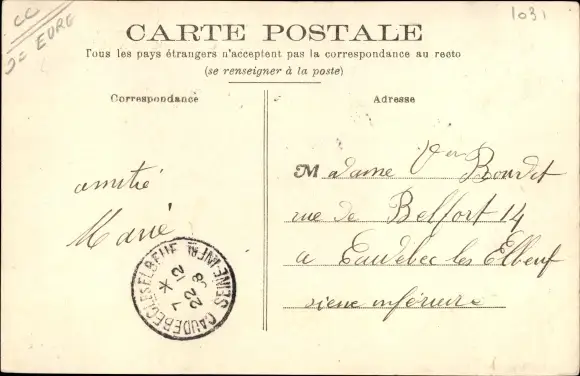 CC
D= EURE
1031
CARTE POSTALE
Tous les pays étrangers n'acceptent pas la correspondance au recto
(se renseigner à la poste)
Correspondance
Adresse
amitié
Marie
Madame Vve Bourdet
rue de Belfort 14
a Caudebec les Elbeuf
siene inférieure
CAUDEBEC-LES-ELBEUF SEINE-INFRE
7 * 12
22 08